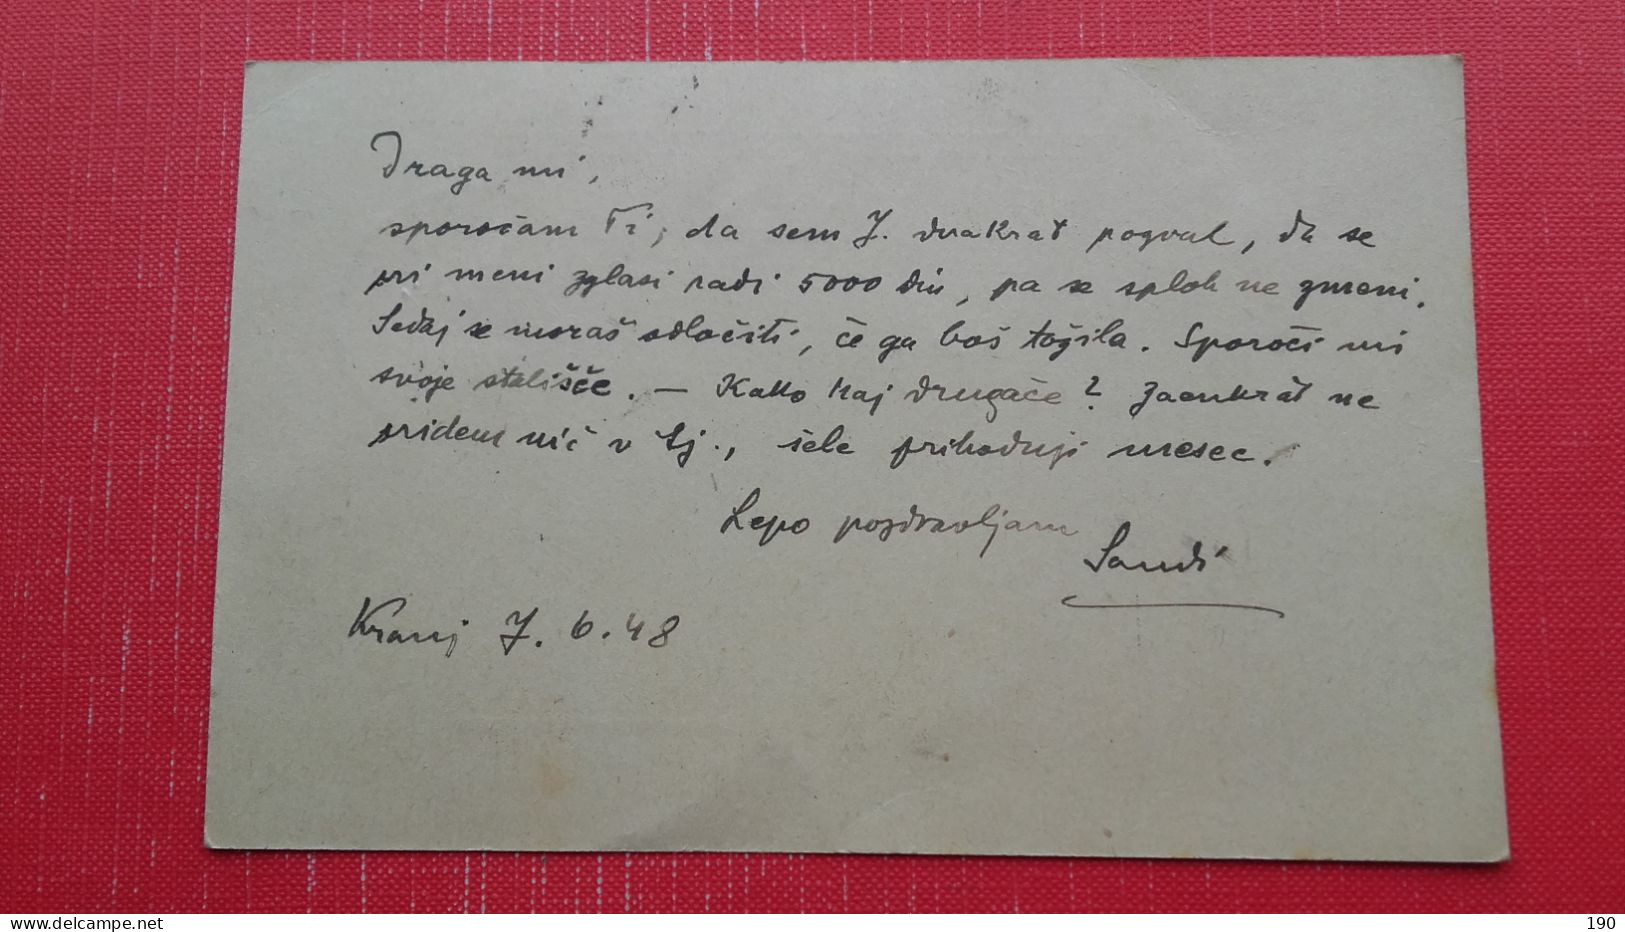 Draga mi,
sporočam Ti, da sem J. dvakrat pozval, da se
pri meni zglasi radi 5000 din, pa se sploh ne zmeni.
Sedaj se moraš odločiti, če ga boš tožila. Sporoči mi
svoje stališče. — Kako kaj drugače? Zaenkrat ne
pridem nič v Lj., šele prihodnji mesec.
Lepo pozdravljam
Sandi
Kranj 7. 6. 48
www.delcampe.net
190